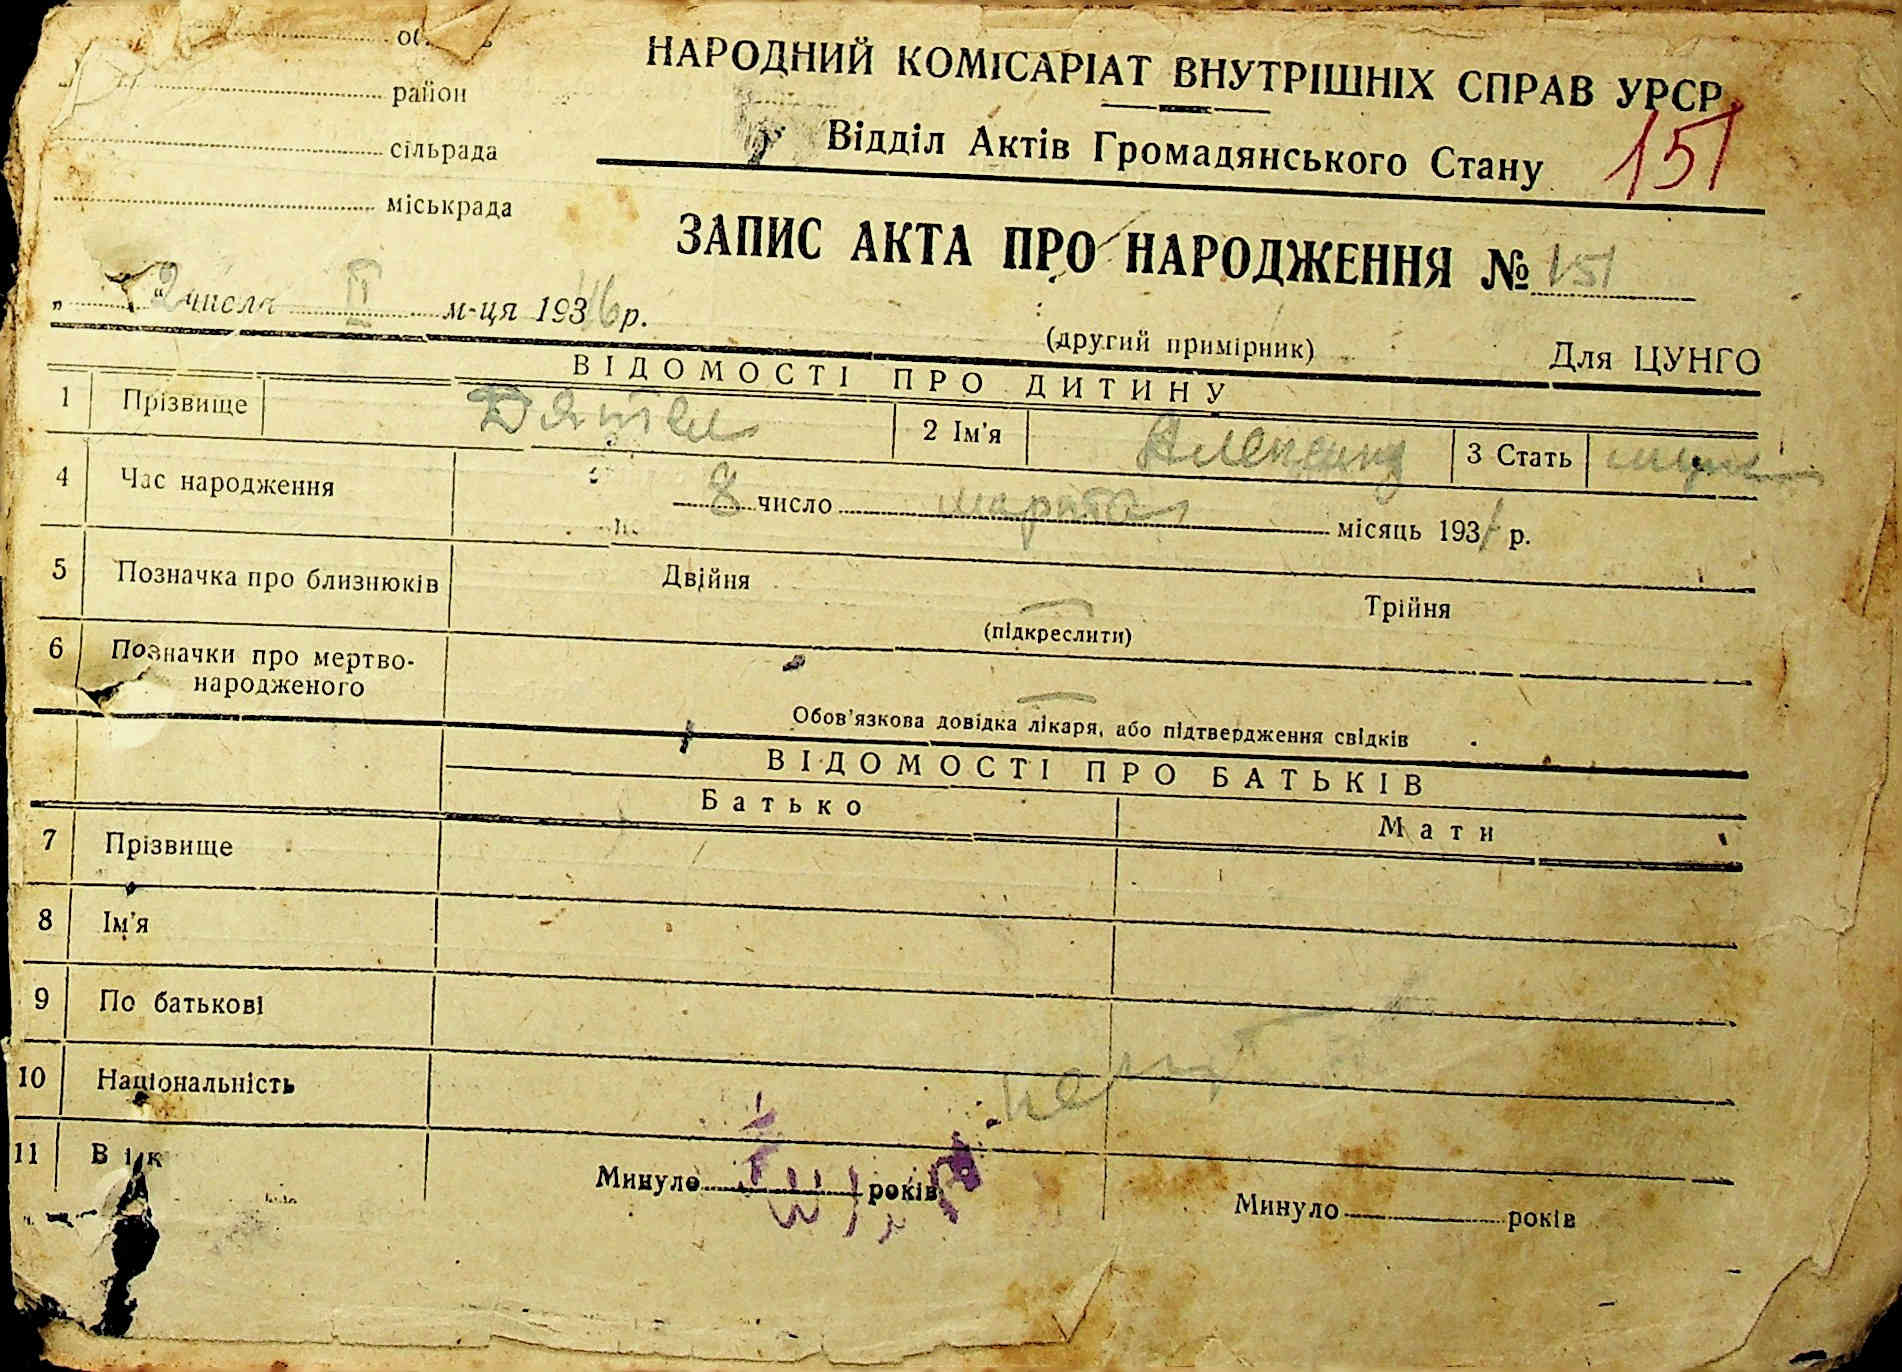 район
сільрада
міськрада
НАРОДНИЙ КОМІСАРІАТ ВНУТРІШНІХ СПРАВ УРСР
Відділ Актів Громадянського Стану
151
ЗАПИС АКТА ПРО НАРОДЖЕННЯ № 151
числа II м-ця 193 р.
(другий примірник)
Для ЦУНГО
ВІДОМОСТІ ПРО ДИТИНУ
1 Прізвище Дятел 2 Ім'я 3 Стать
4 Час народження 8 число марта місяць 193 р.
5 Позначка про близнюків Двійня Трійня
(підкреслити)
6 Позначки про мертво-
народженого
Обов'язкова довідка лікаря, або підтвердження свідків
ВІДОМОСТІ ПРО БАТЬКІВ
Батько Мати
7 Прізвище
8 Ім'я
9 По батькові
10 Національність
11 Вік Минуло років Минуло років